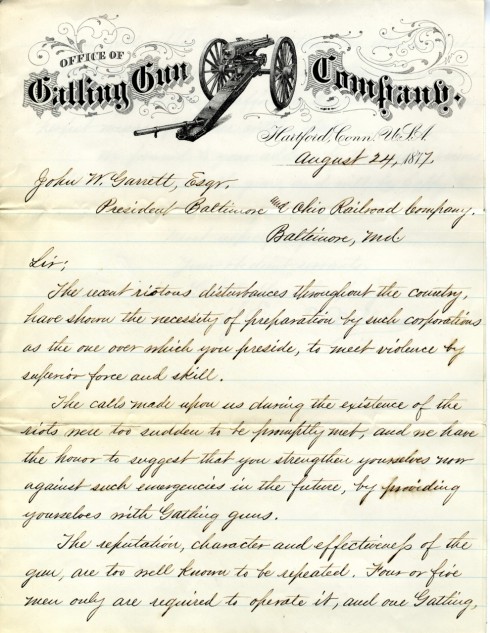 OFFICE OF
Gatling Gun Company.
Hartford, Conn. U.S.A.
August 24, 1877.
John W. Garrett, Esqr.
President Baltimore and Ohio Railroad Company.
Baltimore, Md
Sir;
The recent riotous disturbances throughout the country,
have shown the necessity of preparation by such corporations
as the one over which you preside, to meet violence by
superior force and skill.
The calls made upon us during the existence of the
riots were too sudden to be promptly met, and we have
the honor to suggest that you strengthen yourselves now
against such emergencies in the future, by providing
yourselves with Gatling guns.
The reputation, character and effectiveness of the
gun, are too well known to be repeated. Four or five
men only are required to operate it, and one Gatling,